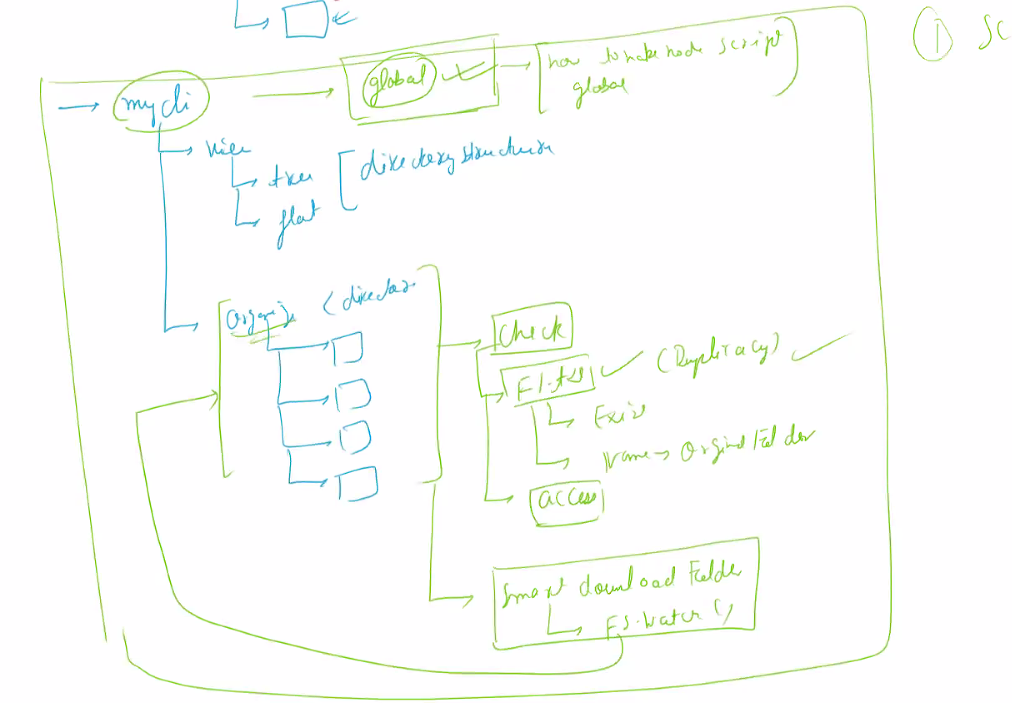 ① SC
how to make node script
global
global
mycli
view
tree
flat
directory structure
Organize (director
Check
(Duplicacy)
Exis
Name → Orginal Folder
access
Smart download Folder
FS.watch ()